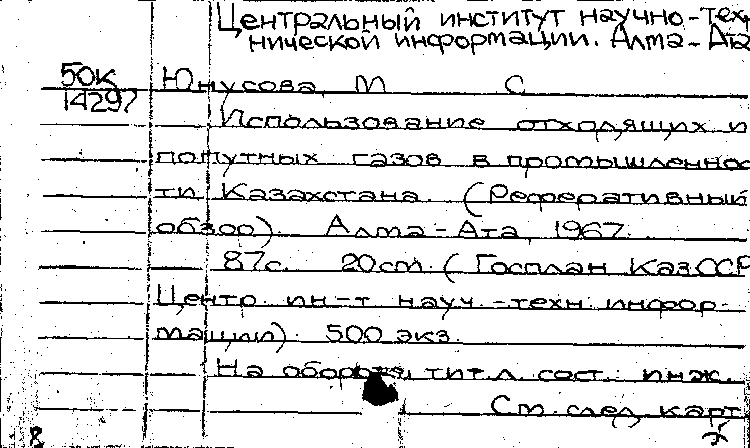 Центральный институт научно-тех-
нической информации. Алма-Ата
50к
14297
Юнусова, М С
Использование отходящих и
попутных газов в промышленнос
ти Казахстана. (Реферативный
обзор). Алма-Ата, 1967.
87с. 20см. (Госплан КазССР
Центр. ин-т науч.-техн. инфор-
мации). 500 экз.
На обороте тит. л. сост.: инж.
См. след. карт
8